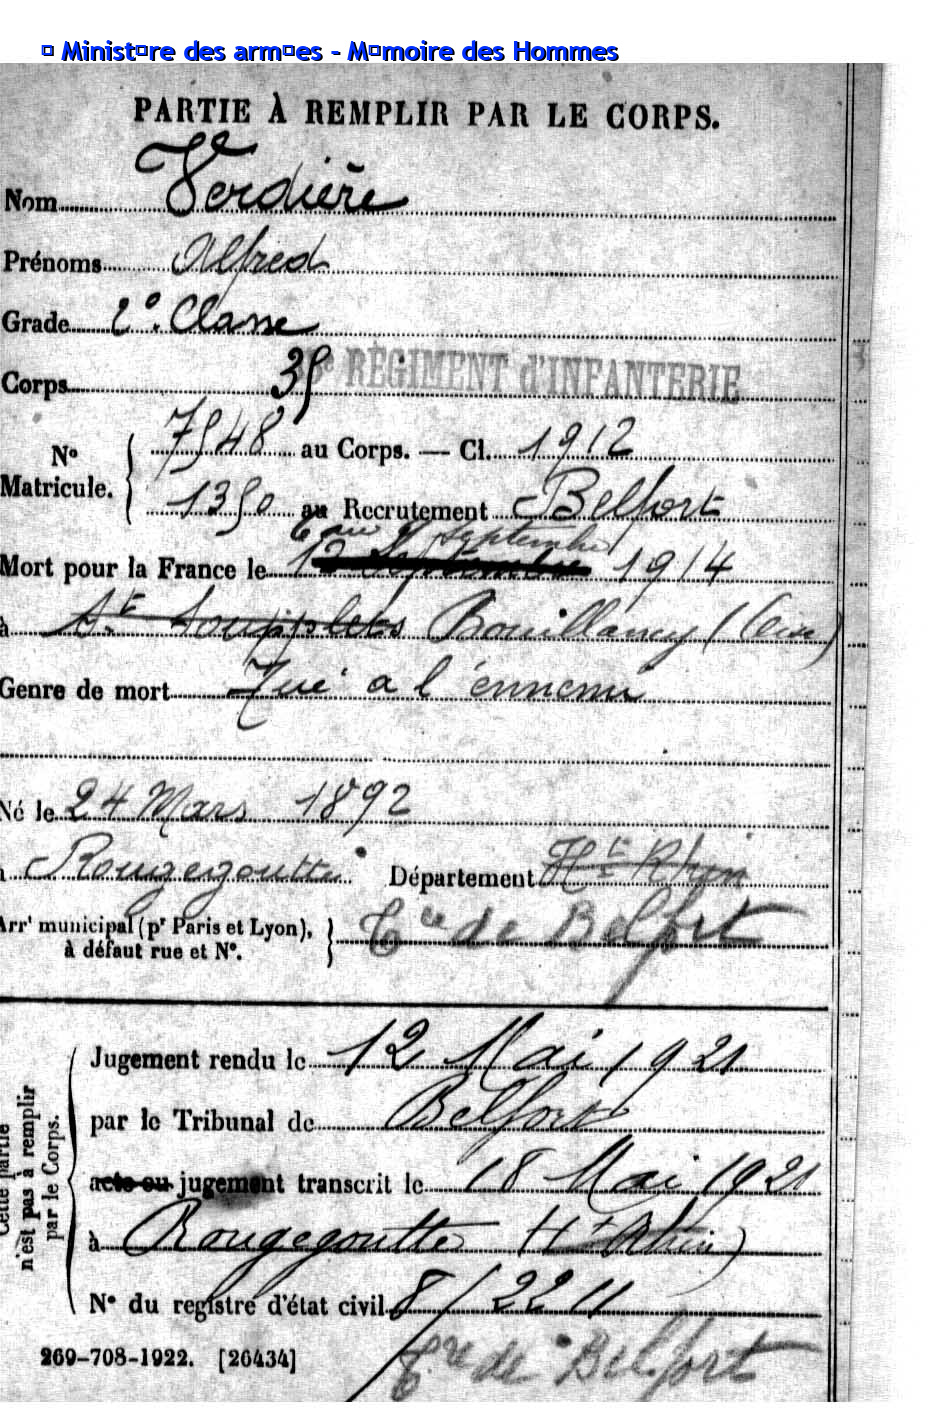 © Ministère des armées - Mémoire des Hommes
PARTIE À REMPLIR PAR LE CORPS.
Nom Verdière
Prénoms Alfred
Grade 2e Classe
Corps 35e RÉGIMENT d'INFANTERIE
No Matricule. 7548 au Corps. — Cl. 1912
1350 au Recrutement Belfort
septembre
Mort pour la France le 12 Septembre 1914
à St Soupplets Bouillancy (Oise)
Genre de mort Tué à l'ennemi
Né le 24 Mars 1892
à Rougegoutte Département Ht Rhin
Arrt municipal (pr Paris et Lyon), à défaut rue et No. Tre de Belfort
Cette partie n'est pas à remplir par le Corps.
Jugement rendu le 12 Mai 1921
par le Tribunal de Belfort
acte ou jugement transcrit le 18 Mai 1921
à Rougegoutte Ht Rhin)
No du registre d'état civil 8/2211
Tre de Belfort
269-708-1922. [26434]